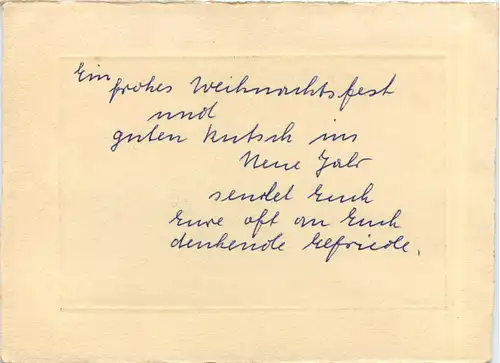 Ein
frohes Weihnachtsfest
und
guten Rutsch ins
Neue Jahr
sendet Euch
Eure oft an Euch
denkende Elfriede.